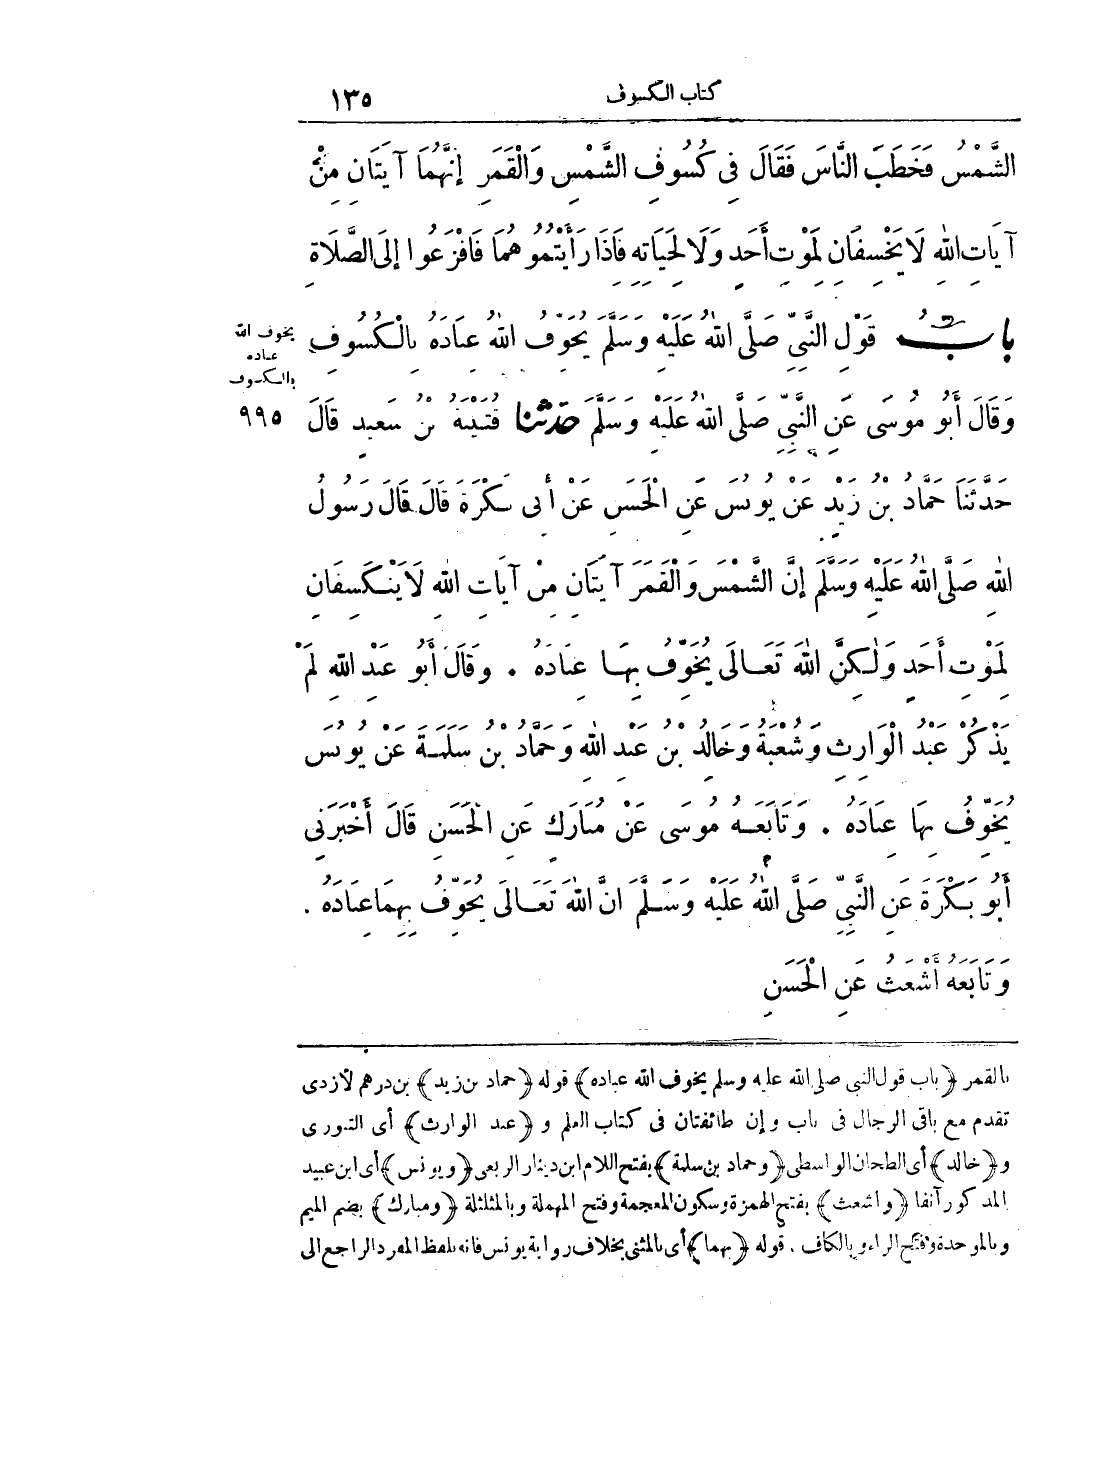 كتاب الكسوف ١٣٥
الشَّمْسُ فَخَطَبَ النَّاسَ فَقَالَ فِي كُسُوفِ الشَّمْسِ وَالْقَمَرِ إِنَّهُمَا آيَتَانِ مِنْ
آيَاتِ اللهِ لَا يَخْسِفَانِ لِمَوْتِ أَحَدٍ وَلَا لِحَيَاتِهِ فَإِذَا رَأَيْتُمُوهُمَا فَافْزَعُوا إِلَى الصَّلَاةِ
باب قَوْلِ النَّبِيِّ صَلَّى اللهُ عَلَيْهِ وَسَلَّمَ يُخَوِّفُ اللهُ عِبَادَهُ بِالْكُسُوفِ
يخوف الله
عباده
بالكسوف
وَقَالَ أَبُو مُوسَى عَنِ النَّبِيِّ صَلَّى اللهُ عَلَيْهِ وَسَلَّمَ حَدَّثَنَا قُتَيْبَةُ بْنُ سَعِيدٍ قَالَ
٩٩٥
حَدَّثَنَا حَمَّادُ بْنُ زَيْدٍ عَنْ يُونُسَ عَنِ الْحَسَنِ عَنْ أَبِي بَكْرَةَ قَالَ قَالَ رَسُولُ
اللهِ صَلَّى اللهُ عَلَيْهِ وَسَلَّمَ إِنَّ الشَّمْسَ وَالْقَمَرَ آيَتَانِ مِنْ آيَاتِ اللهِ لَا يَنْكَسِفَانِ
لِمَوْتِ أَحَدٍ وَلَكِنَّ اللهَ تَعَالَى يُخَوِّفُ بِهَا عِبَادَهُ . وَقَالَ أَبُو عَبْدِ اللهِ لَمْ
يَذْكُرْ عَبْدُ الْوَارِثِ وَشُعْبَةُ وَخَالِدُ بْنُ عَبْدِ اللهِ وَحَمَّادُ بْنُ سَلَمَةَ عَنْ يُونُسَ
يُخَوِّفُ بِهَا عِبَادَهُ . وَتَابَعَهُ مُوسَى عَنْ مُبَارَكٍ عَنِ الْحَسَنِ قَالَ أَخْبَرَنِي
أَبُو بَكْرَةَ عَنِ النَّبِيِّ صَلَّى اللهُ عَلَيْهِ وَسَلَّمَ إِنَّ اللهَ تَعَالَى يُخَوِّفُ بِهِمَا عِبَادَهُ .
وَتَابَعَهُ أَشْعَثُ عَنِ الْحَسَنِ
بالقمر ﴿باب قول النبى صلى الله عليه وسلم يخوف الله عباده﴾ قوله ﴿حماد بن زيد﴾ بن درهم الأزدى
تقدم مع باقى الرجال فى باب وإن طائفتان فى كتاب العلم و ﴿عبد الوارث﴾ أى التنورى
و﴿خالد﴾ أى الطحان الواسطى ﴿وحماد بن سلمة﴾ بفتح اللام ابن دينار الربعى ﴿ويونس﴾ أى ابن عبيد
المذكور آنفا ﴿وأشعث﴾ بفتح الهمزة وسكون المعجمة وفتح المهملة وبالمثلثة ﴿ومبارك﴾ بضم الميم
وبالموحدة وفتح الراء وبالكاف . قوله ﴿بهما﴾ أى بالمثنى بخلاف رواية يونس فانه بلفظ المفرد الراجع الى